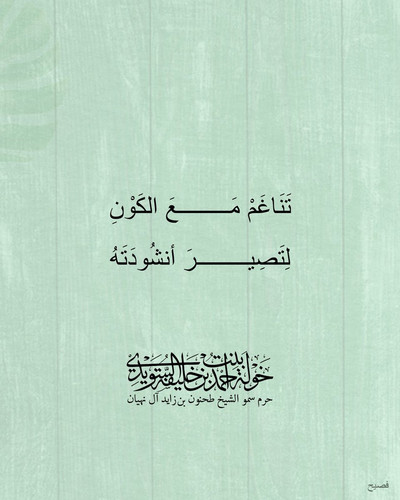 تَنَاغَمْ مَـــــعَ الكَوْنِ
لِتَصِيـــــرَ أنشُودَتَهُ
خولة بنت أحمد بن خليفة السويدي
حرم سمو الشيخ طحنون بن زايد آل نهيان
فصيح